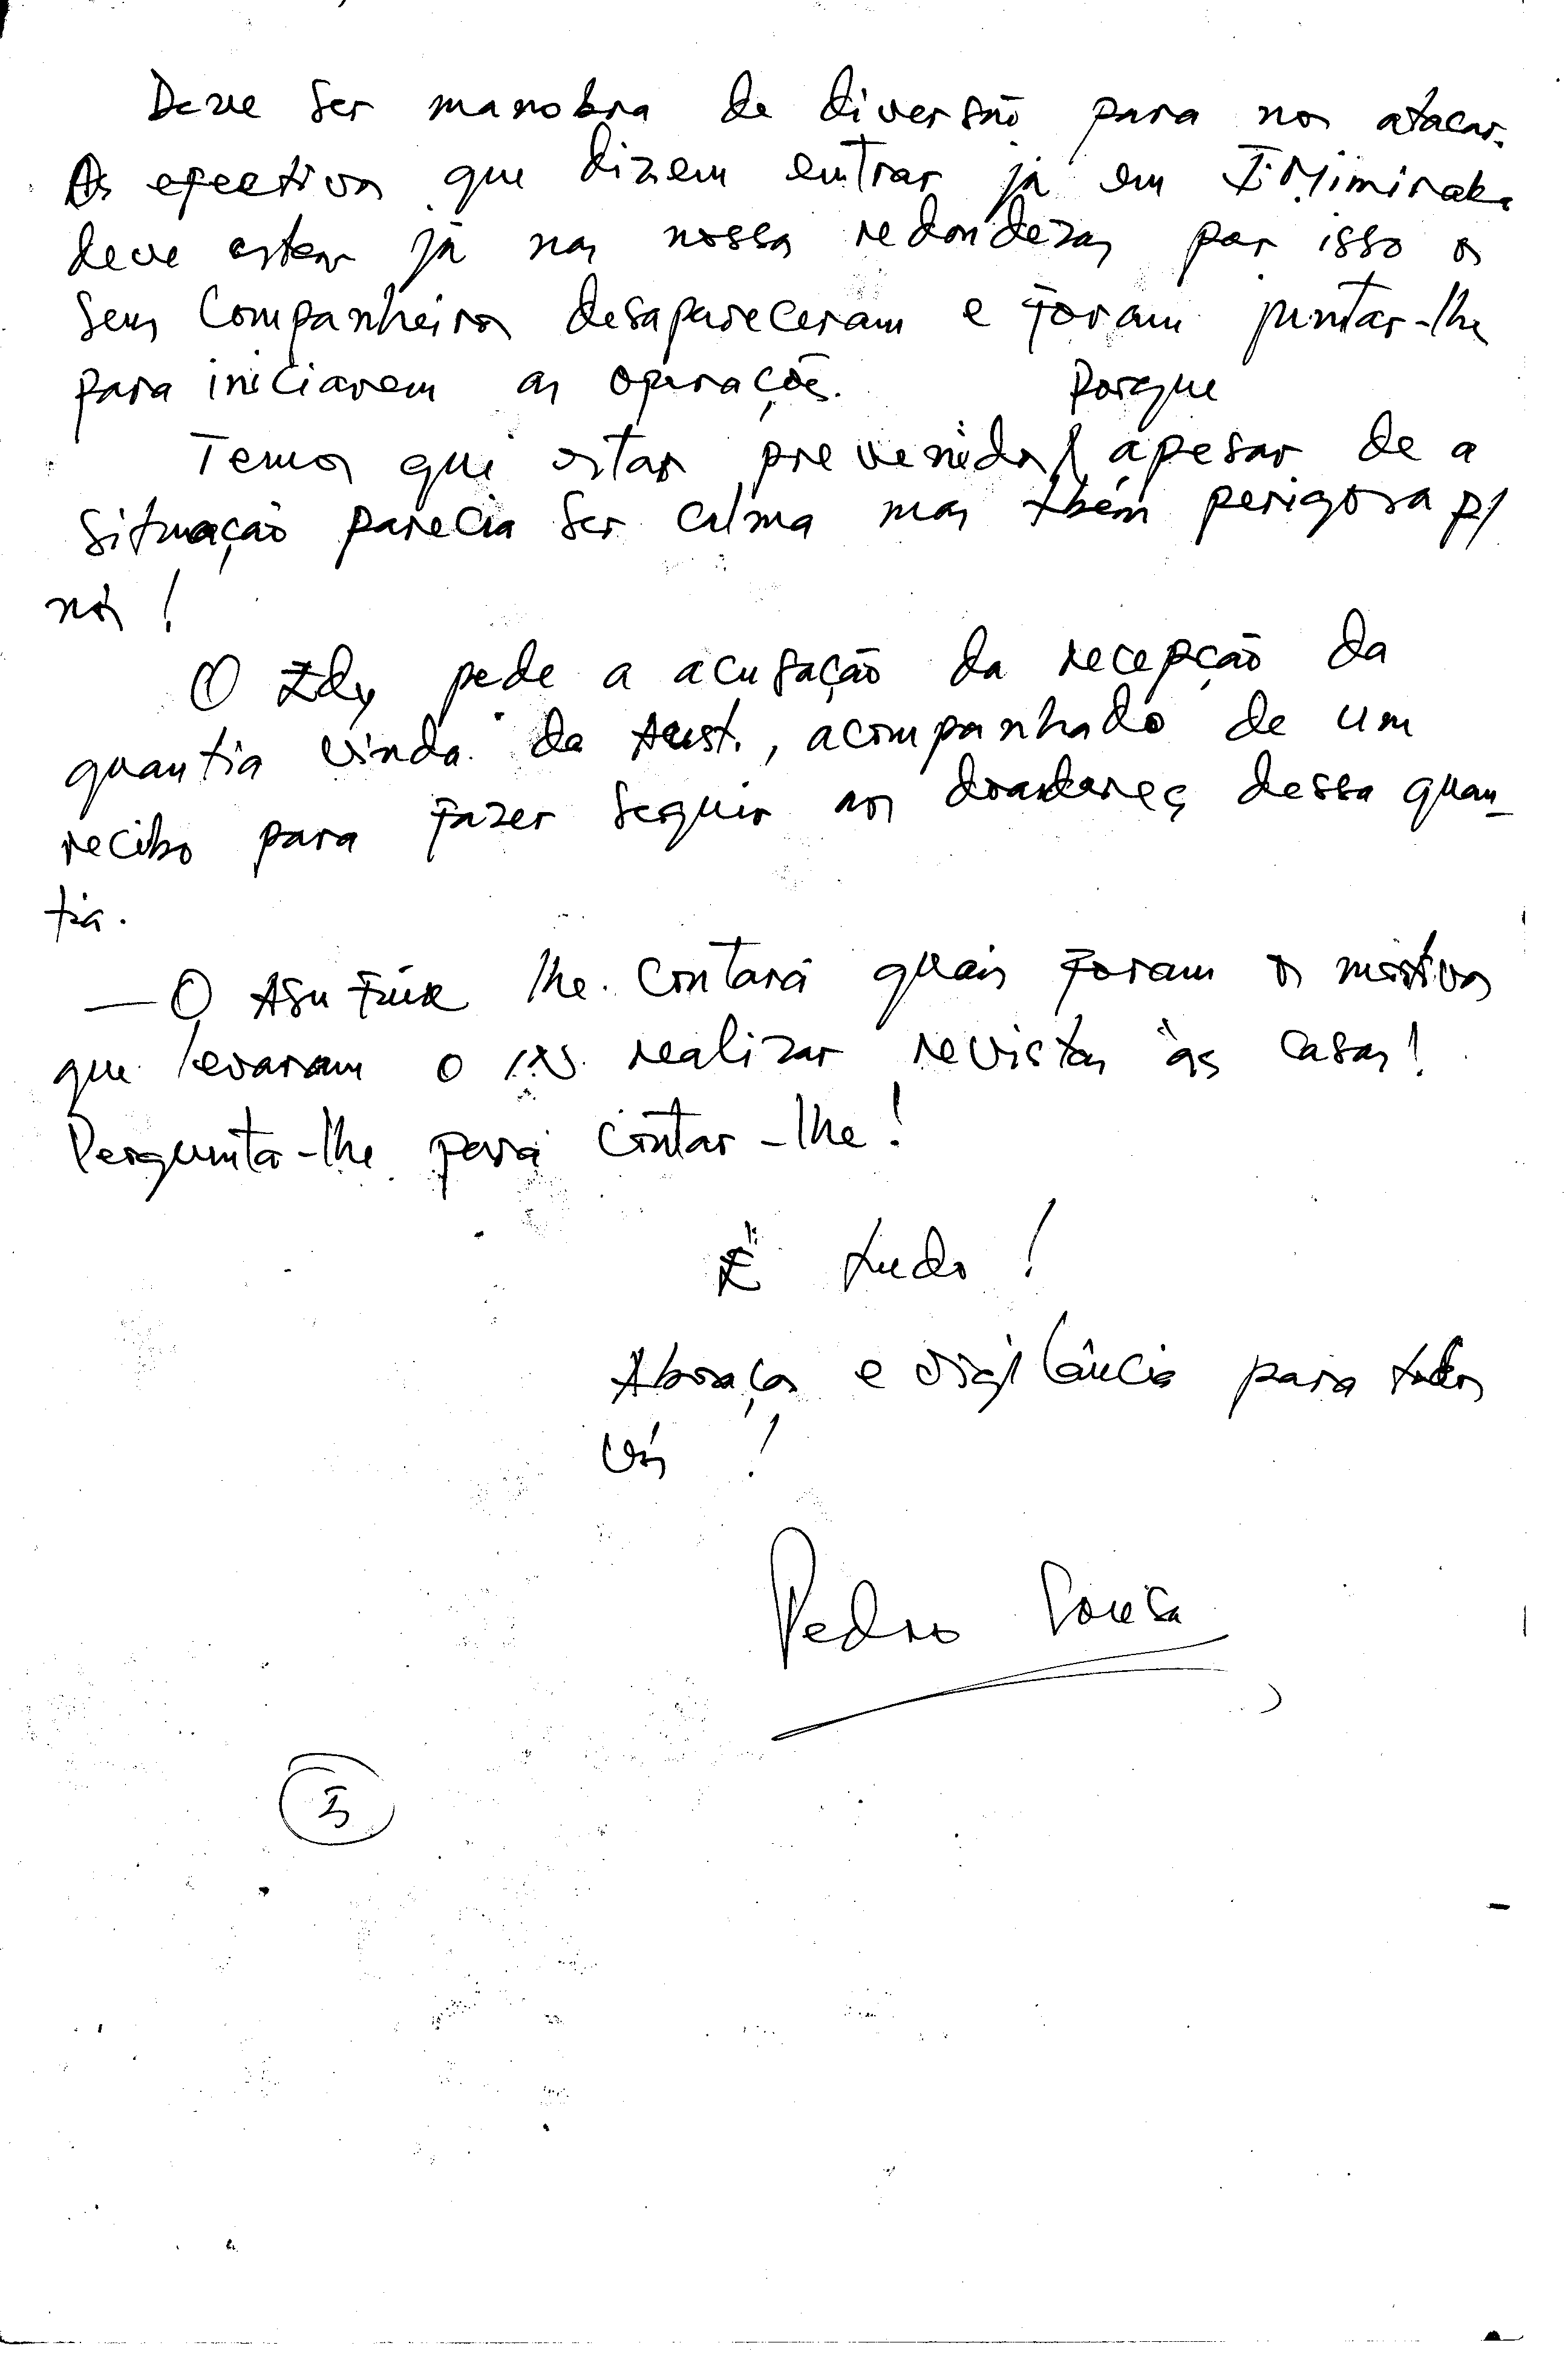 Deve ser manobra de diversão para nos atacar.
Os efectivos que dizem entrar já em
deve estar já nas nossa redondezas por isso os
seus companheiros desapareceram e foram juntar-lhe
para iniciarem as operações.
Porque
Temos que estar prevenidos apesar de a
situação parecia ser calma mas tbém perigosa p/
nós!
O Edy pede a acusação da recepção da
quantia vinda da Aust., acompanhado de um
recibo para fazer seguir aos doadores dessa quan-
tia.
— O Asu lhe contará quais foram os motivos
que levaram o realizar revistas às casas!
Pergunta-lhe para contar-lhe!
É tudo!
Abraços e vigilância para todos
vós!
Pedro Sousa